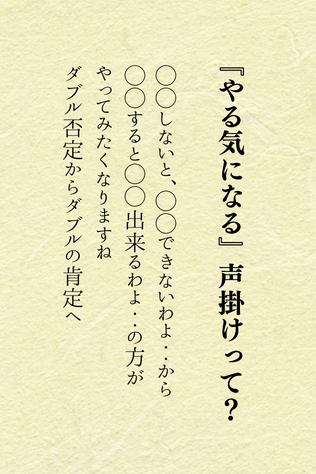 『やる気になる』声掛けって?
〇〇しないと、〇〇できないわよ‥から
〇〇すると〇〇出来るわよ‥の方が
やってみたくなりますね
ダブル否定からダブルの肯定へ